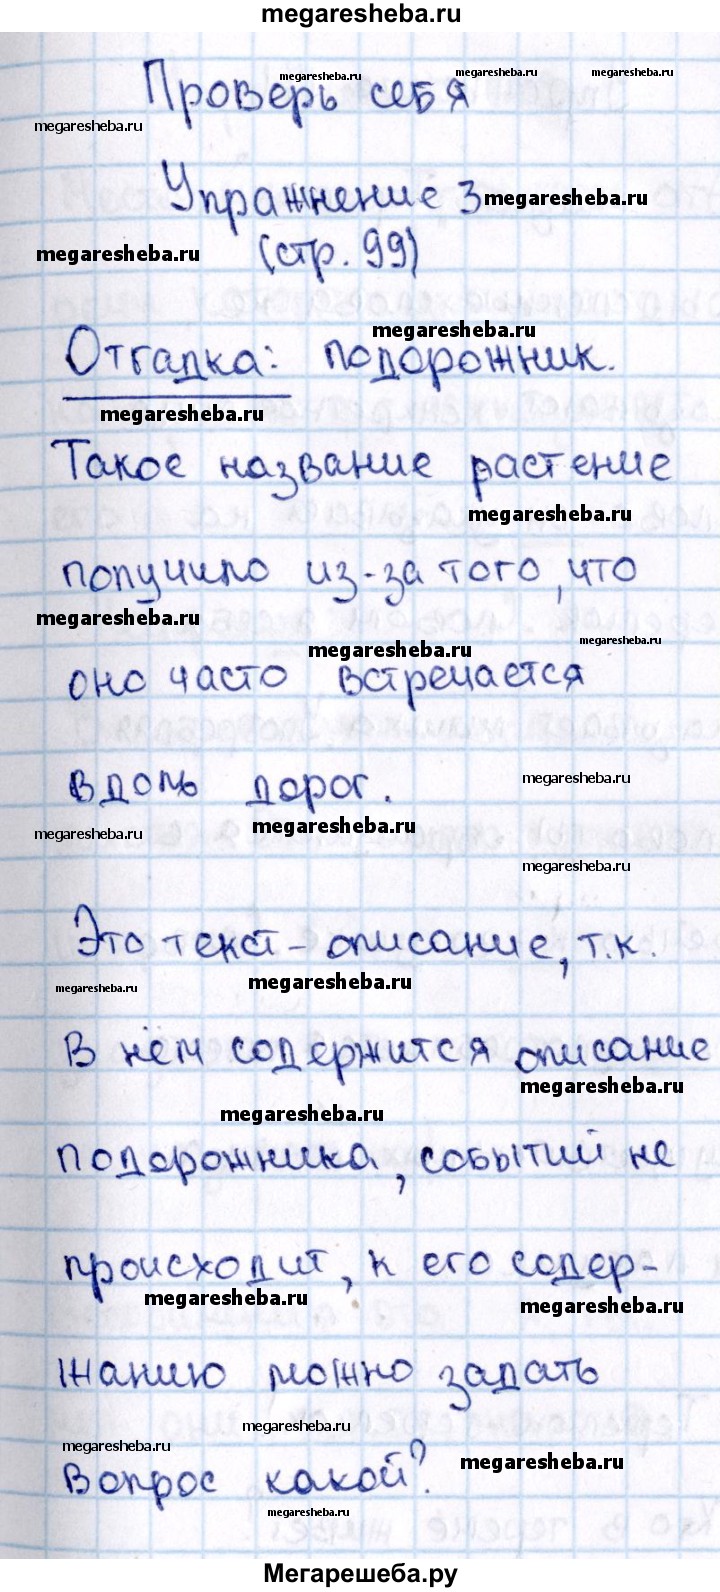 megaresheba.ru
Проверь себя
megaresheba.ru
megaresheba.ru
megaresheba.ru
megaresheba.ru
Упражнение 3
megaresheba.ru
megaresheba.ru
(стр. 99)
megaresheba.ru
Отгадка: подорожник.
megaresheba.ru
Такое название растение
megaresheba.ru
получило из-за того, что
megaresheba.ru
megaresheba.ru
megaresheba.ru
оно часто встречается
megaresheba.ru
вдоль дорог.
megaresheba.ru
megaresheba.ru
megaresheba.ru
Это текст-описание, т.к.
megaresheba.ru
megaresheba.ru
в нём содержится описание
megaresheba.ru
megaresheba.ru
подорожника, событий не
происходит, к его содер-
megaresheba.ru
megaresheba.ru
жанию можно задать
megaresheba.ru
megaresheba.ru
вопрос какой?
megaresheba.ru
megaresheba.ru
Мегарешеба.ру